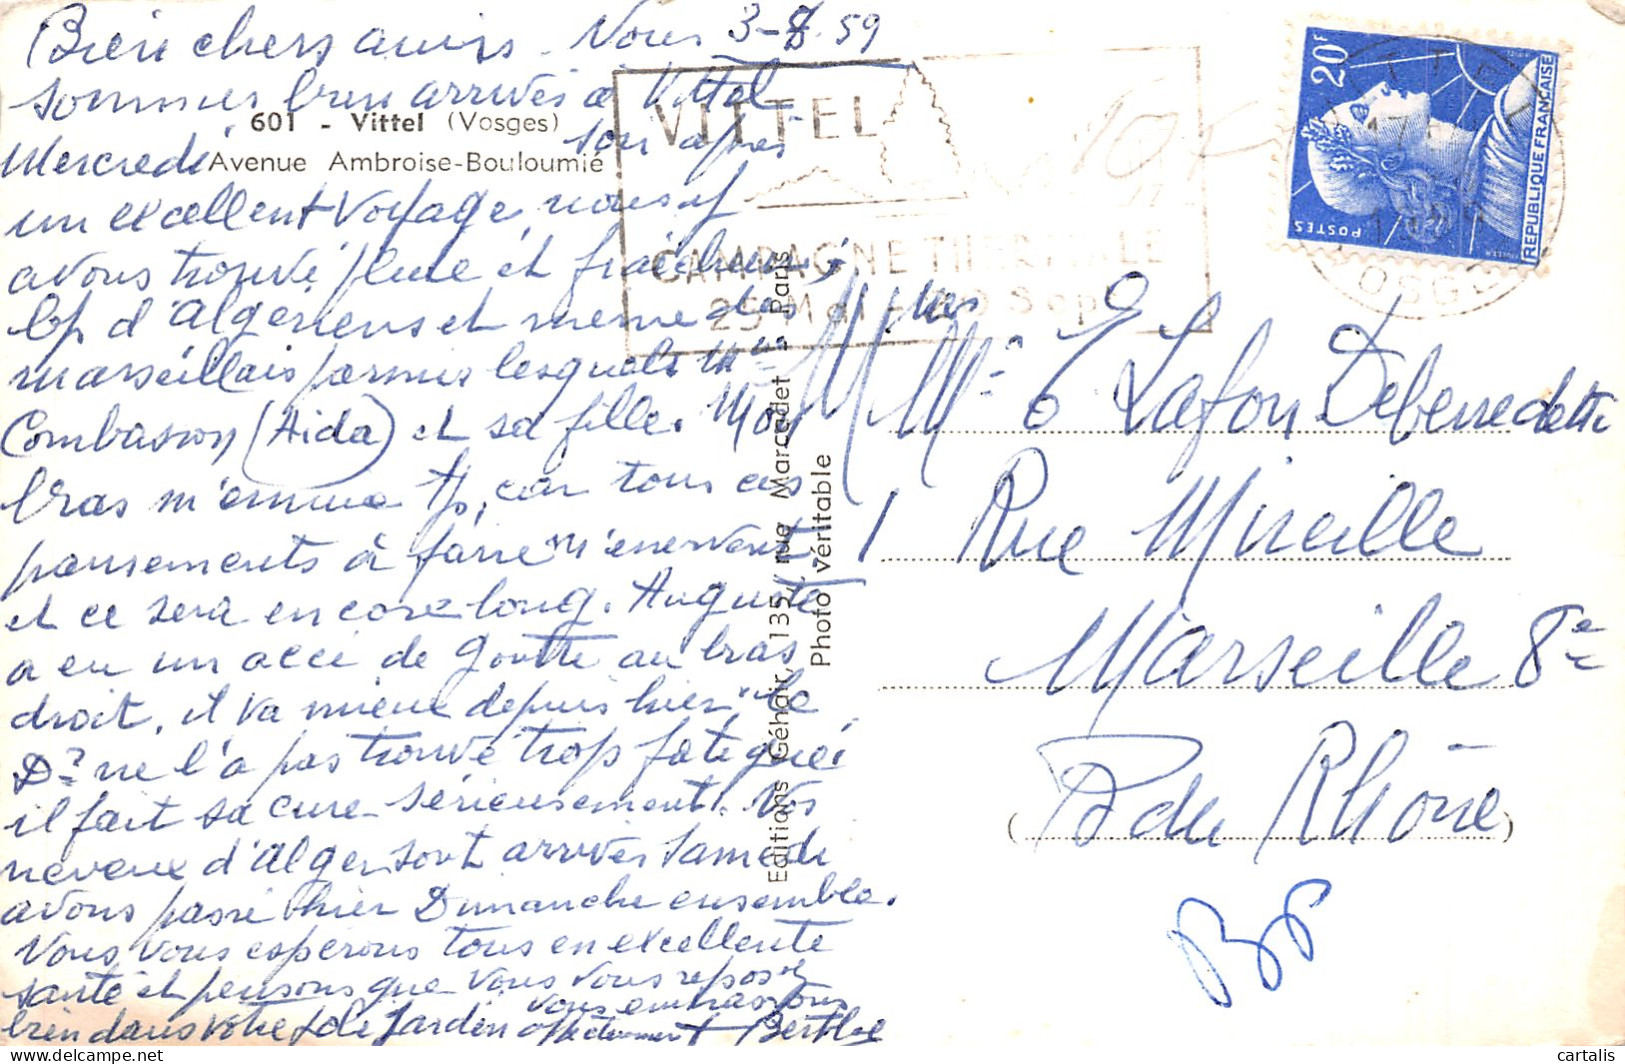 Bien chers amis. Nous 3-8-59
sommes bien arrivés à Vittel
601 - Vittel (Vosges)
Mercredi soir après
Avenue Ambroise-Bouloumié
un excellent voyage, nous y
avons trouvé pluie et fraîcheur,
bp d'Algériens et même des
marseillais parmis lesquels Mme
Combasson (Aida) et sa fille. Mon
bras m'ennuie tjs, car tous ces
pansements à faire m'énervent,
et ce sera encore long. Auguste
a eu un accé de goutte au bras
droit, il va mieux depuis hier, le
Dr ne l'a pas trouvé trop fatigué,
il fait sa cure sérieusement. Vos
neveux d'Alger sont arrivés Samedi
avons passé hier Dimanche ensemble.
Nous vous espérons tous en excellente
santé et pensons que vous vous reposez
bien dans votre joli Jardin
vous embrassons
affectueusement Berthe
Editions Géhair, 135, rue Marcadet - Paris
Photo véritable
VITTEL
CAMPAGNE THERMALE
25 Mai - 20 Sept
20F
POSTES
REPUBLIQUE FRANÇAISE
MULLER
1959
Mmes
Mme E Lafon Debenedetti
1 Rue Mireille
Marseille 8e
B du Rhône